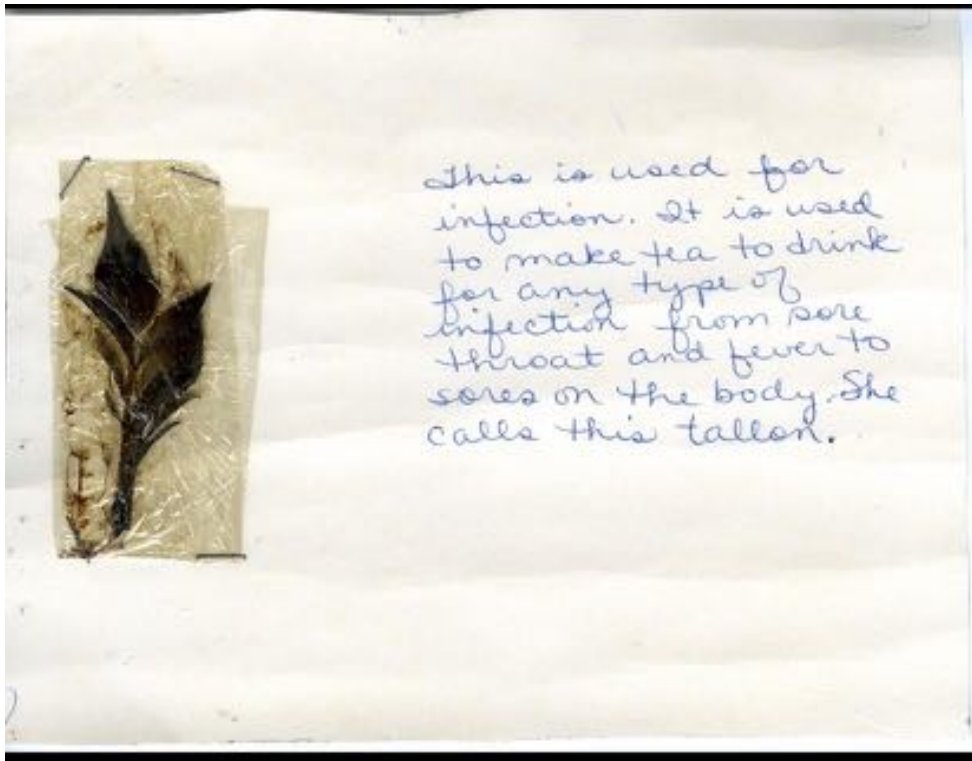 This is used for
infection. It is used
to make tea to drink
for any type of
infection from sore
throat and fever to
sores on the body. She
calls this tallon.